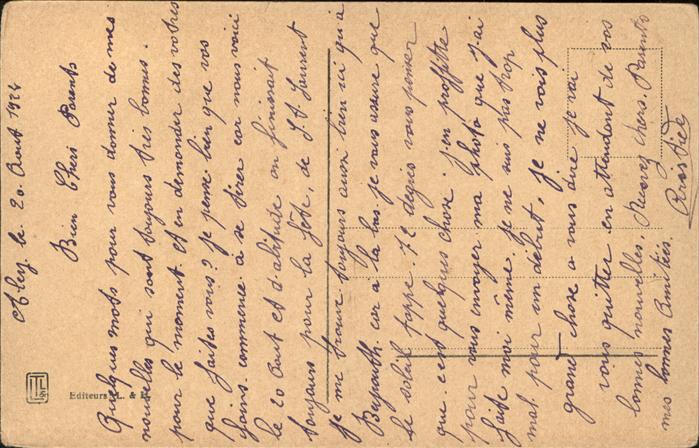 Aley le 20 Aout 1924
Bien Chers Parents
Quelques mots pour vous donner de mes
nouvelles qui sont toujours très bonnes.
pour le moment et en demander des votres
que faites vous? je pense bien que vos
foins commence à se tirer car nous voici
le 20 Aout et d'altitude on finissait
toujours pour la fête, de St Laurent
je me trouve toujours aussi bien ici qu'à
Beyrouth car à la bas je vous assure que
le soleil tappe 72 degrés vous penser
que c'est quelques chose j'en profitte
pour vous envoyer ma photo que j'ai
faite moi même. je ne suis pas trop
mal pour un début, je ne vois plus
grand chose a vous dire je vai
vous quitter en attendant de vos
bonnes nouvelles. Recevez chers Parents
mes bonnes Amitiés.
Editeurs L. &